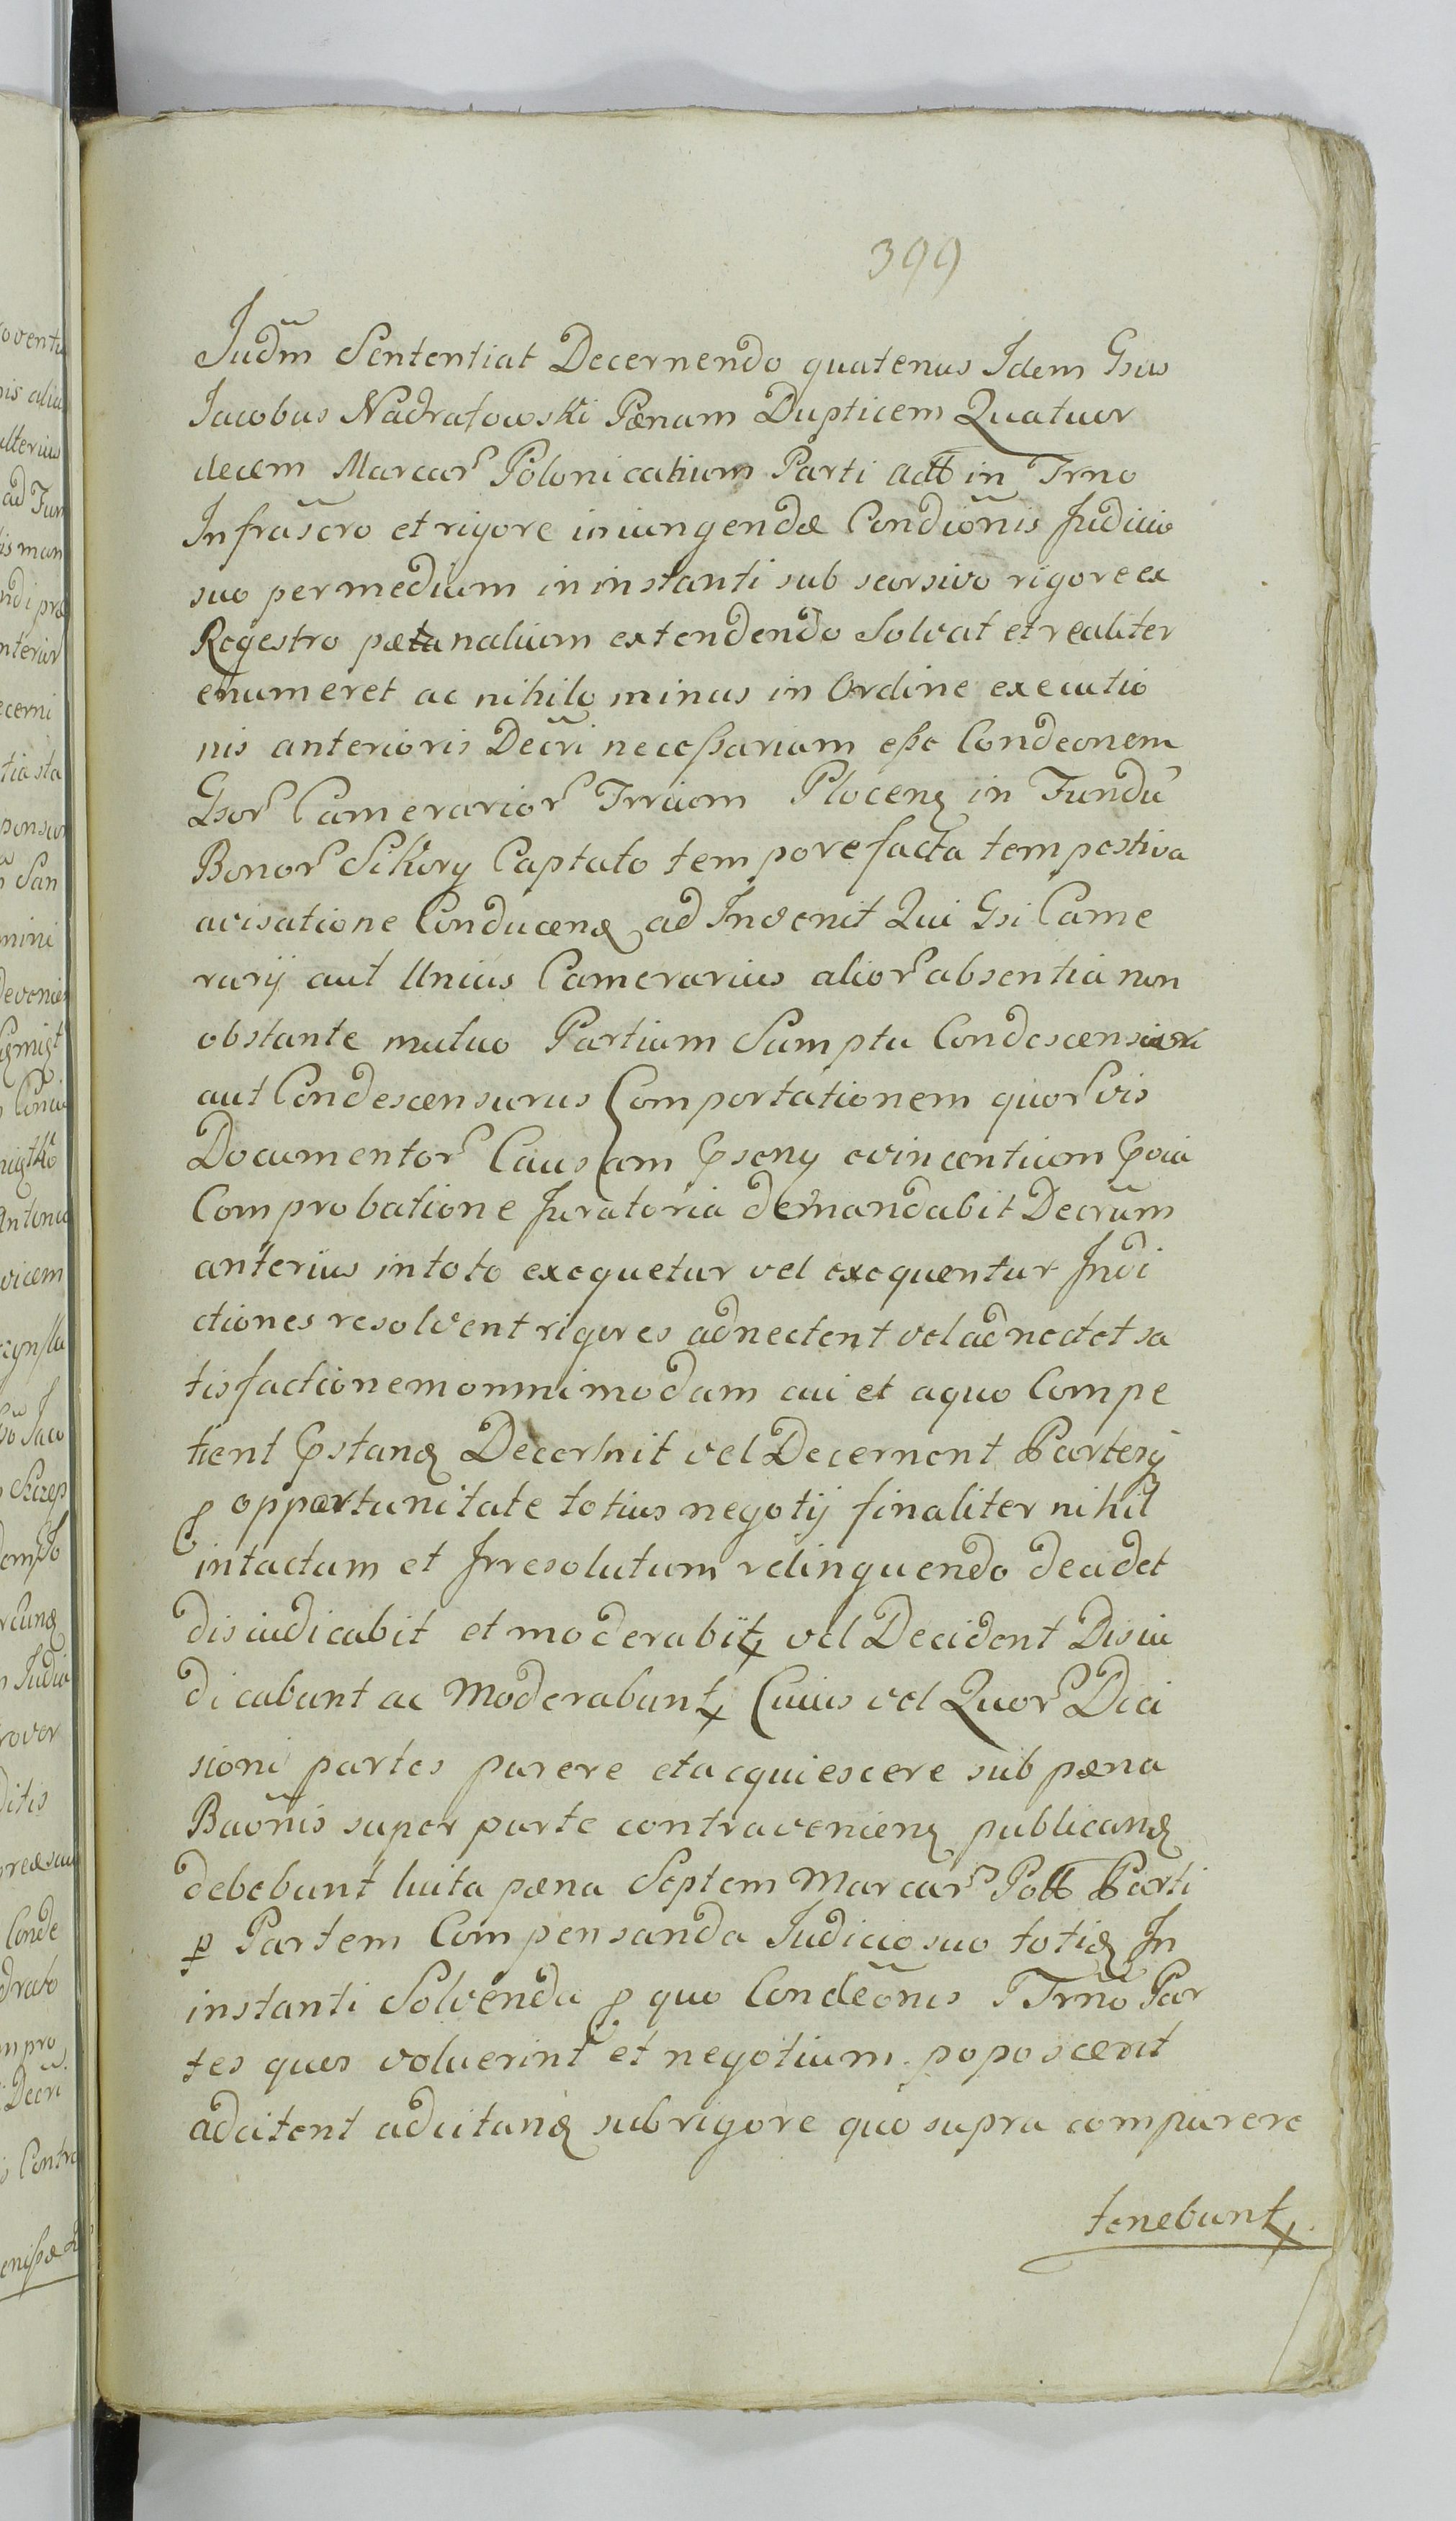 399
Judm̃ Sententiat Decernendo quatenus Idem Gsus
Jacobus Nadratowski Pænam Duplicem Quatuor
decem Marcar Polonicalium Parti actt in Trno
Infrãscro et rigore iniungendæ Condiõnis Judicio
suo per medium in instanti sub seorsivo rigore ex
Regestro pænalium extendendo Solvat et realiter
enumeret ac nihilo minus in Ordine executio
nis anterioris Decr̃i necessarium esse Condeonem
Gsor Camerarior Trrium Plocenȝ in Fundũ
Bonor Sikory Captato tempore facta tempestiva
avisatione Conducenȝ ad Invenit Qui Gsi Came
rarij aut Unius Camerarius alior absentia non
obstante mutuo Partium Sumptu Condescensuri
aut Condescensurus Comportationem quorvis
Documentor Causam pseny evincentium pvia
Comprobatione Juratoria demandabit Decrũm
anterius in toto exequetur vel exequentur Indi
ctiones resolvent rigores adnectent vel adnectet sa
tisfactionem omnimodam cui et a quo Compe
tient pstanȝ Decernit vel Decernent Partesq
p opportunitate totius negotij finaliter nihil
intactum et Irresolutum relinquendo decidet
disiudicabit et moderabit, vel Decident Disiu
dicabunt ac Moderabunt, Cuius vel Quor Deci
sioni partes parere et acquiescere sub pæna
Baõnis super parte contravenienȝ publicanȝ
debebunt luita pæna Septem Marcar Poll Parti
p Partem Compensanda Judicio suo totiȝ In
instanti Solvenda p quo Condeõnis Trño Par
tes quas voluerint et negotium poposcerit
adcitent adcitanȝ sub rigore quo supra comparere
tenebunt,